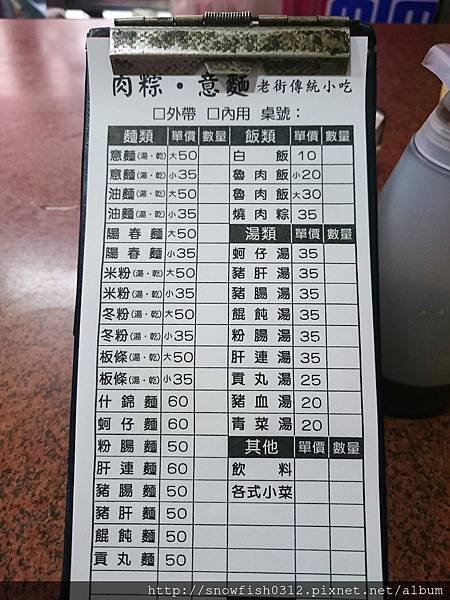 肉粽・意麵 老街傳統小吃
□外帶 □內用 桌號：
麵類 單價 數量
意麵(湯・乾) 大50
意麵(湯・乾) 小35
油麵(湯・乾) 大50
油麵(湯・乾) 小35
陽春麵 大50
陽春麵 小35
米粉(湯・乾) 大50
米粉(湯・乾) 小35
冬粉(湯・乾) 大50
冬粉(湯・乾) 小35
板條(湯・乾) 大50
板條(湯・乾) 小35
什錦麵 60
蚵仔麵 60
粉腸麵 50
肝連麵 60
豬腸麵 50
豬肝麵 50
餛飩麵 50
貢丸麵 50
飯類 單價 數量
白飯 10
魯肉飯 小20
魯肉飯 大30
燒肉粽 35
湯類 單價 數量
蚵仔湯 35
豬肝湯 35
豬腸湯 35
餛飩湯 35
粉腸湯 35
肝連湯 35
貢丸湯 25
豬血湯 20
青菜湯 20
其他 單價 數量
飲料
各式小菜
http://snowfish0312.pixnet.net/album